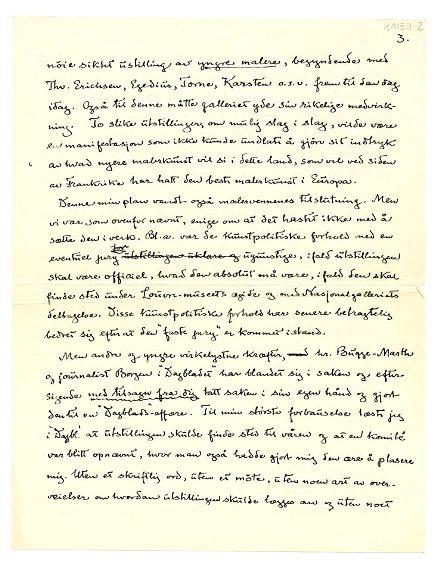 KM59-2
3.
nöie siktet utstilling av yngre malere, begyndende med
Thv. Erichsen, Egedius, Torne, Karsten o.s.v. frem til den dag
idag. Også til denne måtte galleriet yde sin rikelige medvirk-
ning. To slike utstillinger, om mulig slag i slag, vilde være
en manifestasjon som ikke kunde undlate å gjöre sit indtryk
av hvad nyere malerkunst vil si i dette land, som vel ved siden
av Frankrike har hatt den beste malerkunst i Europa.
Denne min plan vandt også malervennenes tilslutning. Men
vi var, som ovenfor nævnt, enige om at det hastet ikke med å
sætte den i verk. Bl.a. var de kunstpolitiske forhold ved en
eventuel jury for ugunstige, ifald utstillingen
skal være officiel, hvad den absolut må være, ifald den skal
finde sted under Louvre-museets ægide og med Nasjonalgalleriets
deltagelse. Disse kunstpolitiske forhold har senere betragtelig
bedret sig efterat den "faste jury" er kommet istand.
Men andre og yngre virkelystne kræfter, hr. Bugge-Marthe
og journalist Borgen i "Dagbladet" har blandet sig i saken og efter-
sigende med tilsagn fra dig tatt saken i sin egen hånd og gjort
den til en "Dagblads-affære. Til min störste forbauselse læste jeg
i "Dagbl." at utstillingen skulde finde sted til våren og at en komité
var blitt opnævnt, hvor man også hadde gjort mig den ære å plasere
mig. Uten et skriftlig ord, uten et möte, uten noen art av over-
veielser om hvordan utstillingen skulde lægges an og uten noet